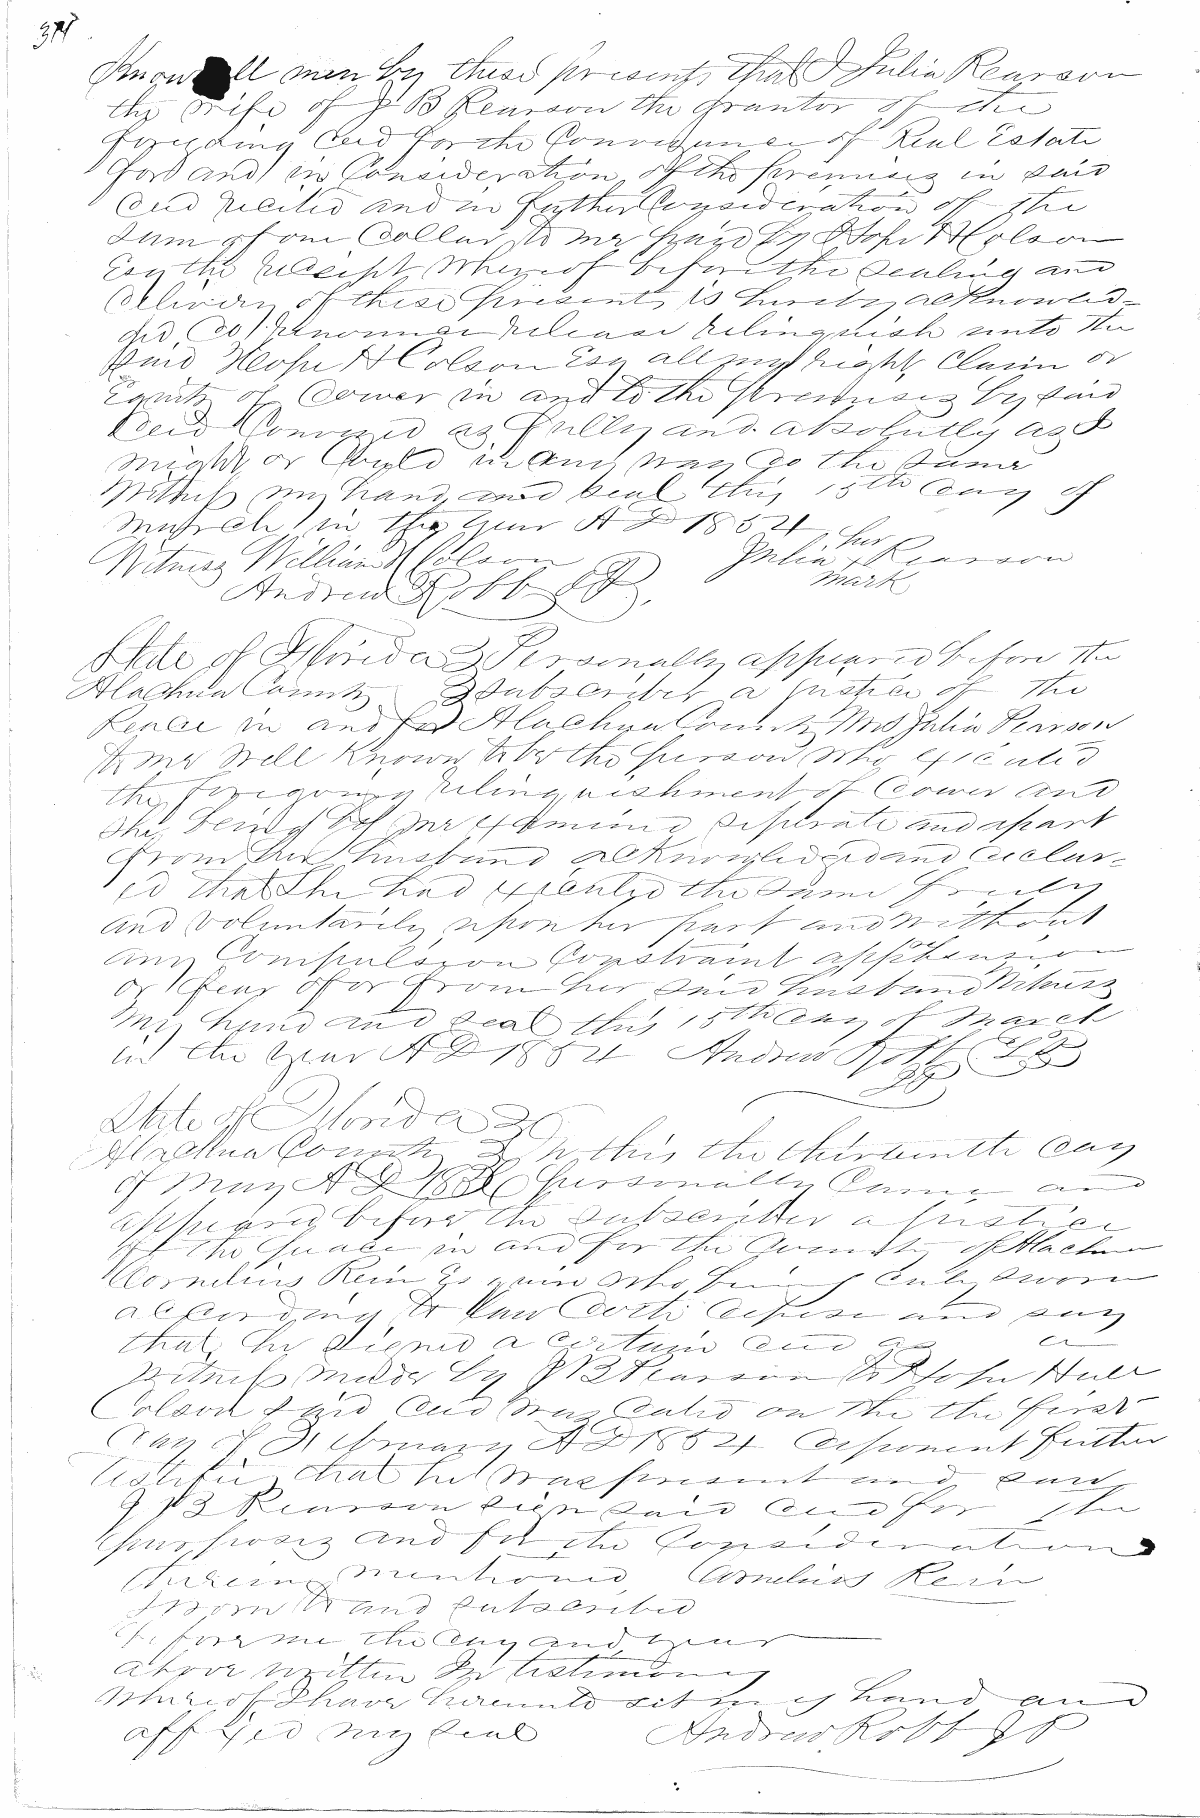 Know all men by these presents that I Julia Pearson
the wife of J B Pearson the grantor of the
foregoing deed for the Conveyance of Real Estate
for and in Consideration of the premises in said
deed recited and in further Consideration of the
sum of one dollar to me paid by Hope H Colson
Esq the receipt whereof before the sealing and
delivery of these presents is hereby acknowled-
ged, do renounce release relinquish unto the
said Hope H Colson Esq all my right Claim or
Equity of dower in and to the premises by said
deed Conveyed as fully and absolutely as I
might or Could in any way do the same
Witness my hand and seal this 15th day of
March in the year A D 1854
her
Witness William Colson Julia + Pearson
mark
Andrew Robb J P.
State of Florida } Personally appeared before the
Alachua County } subscriber a justice of the
Peace in and for Alachua County Mrs Julia Pearson
to me well Known to be the person who executed
the foregoing relinquishment of dower and
she being by me examined seperate and apart
from her husband acknowledged and declar-
ed that She had executed the same freely
and voluntarily upon her part and without
any Compulsion Constraint apprehension
or fear of or from her said husband Witness
my hand and seal this 15th day of March
in the year A D 1854 Andrew Robb LS
JP
State of Florida }
Alachua County } On this the thirteenth day
of May A D personally Came and
appeared before the subscriber a justice
of the peace in and for the County of Alachua
Cornelius Rein who being duly sworn
according to law doth depose and say
that he signed a certain deed as a
witness made by J B Pearson to Hope Hull
Colson said deed was dated on the the first
day of February A D 1854 deponent further
testifies that he was present and saw
J B Pearson sign said deed for the
purposes and for the Consideration
therein mentioned Cornelius Rein
sworn to and subscribed
before me the day and year
above written In testimony
whereof I have hereunto set my hand and
affixed my seal Andrew Robb J P